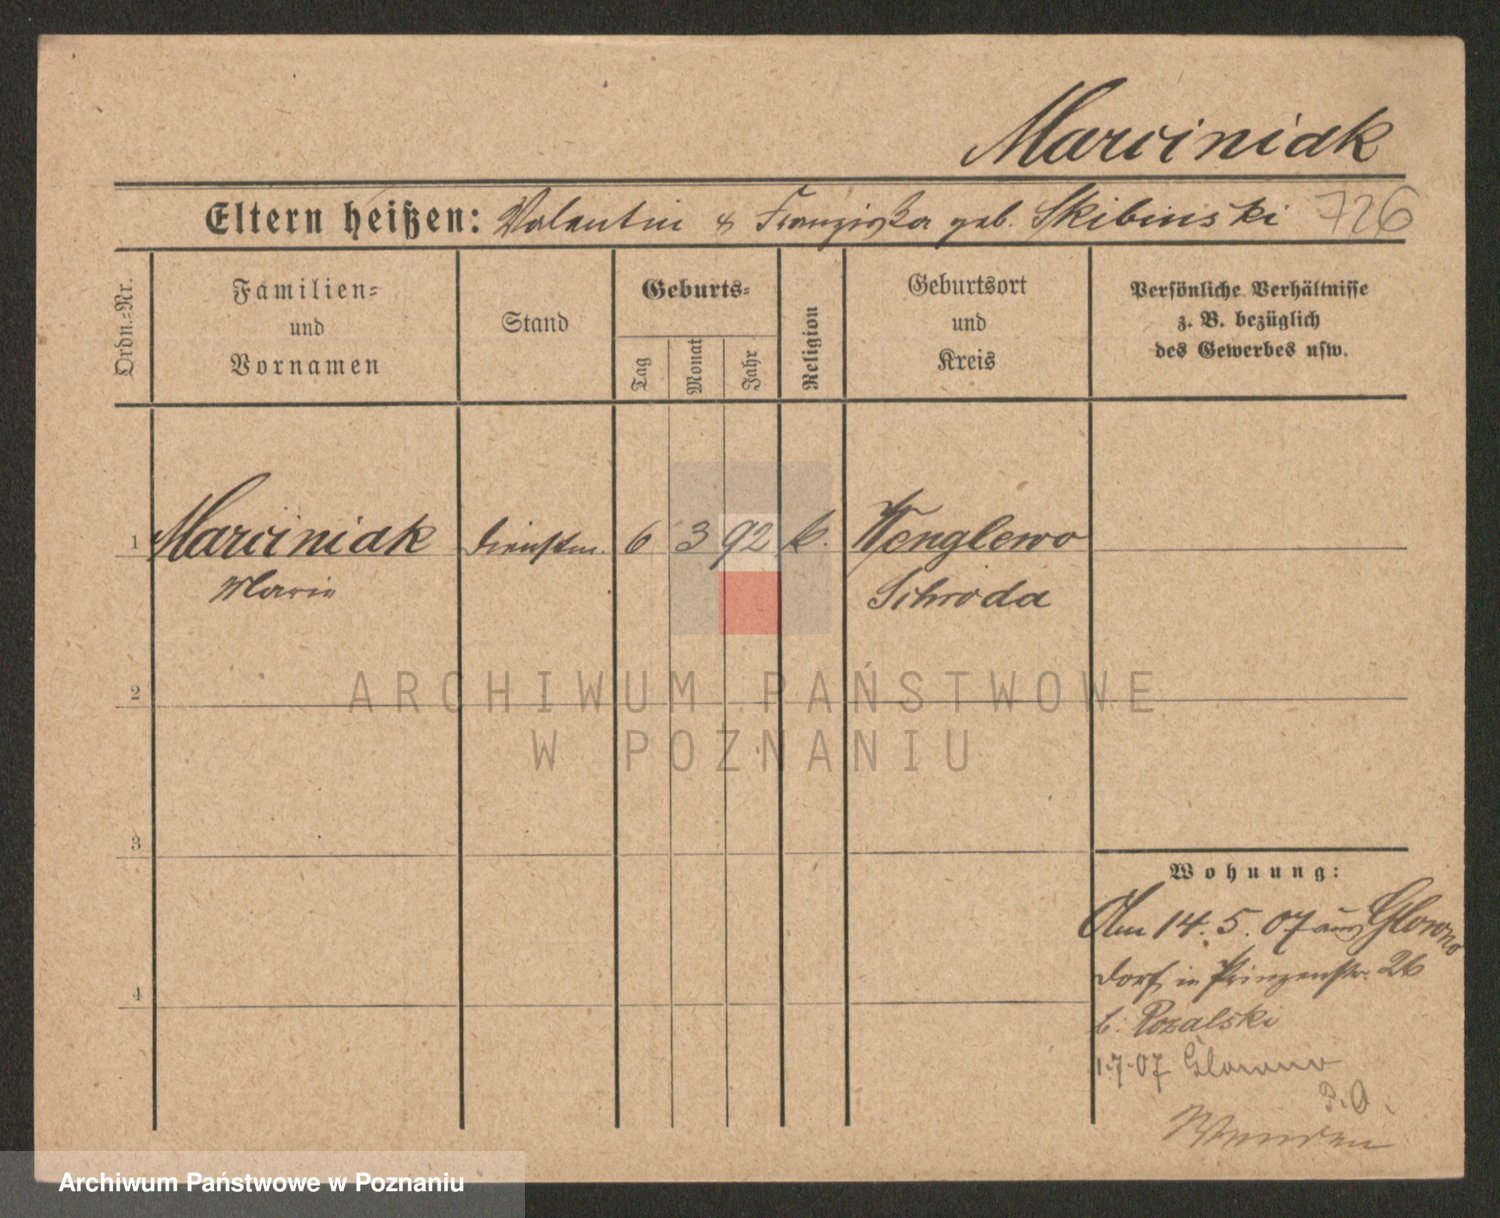 Marciniak
Eltern heißen: Valentin & Franziska geb. Skibinski 726
Ordn.=Nr.
Familien=
und
Vornamen
Stand
Geburts=
Tag
Monat
Jahr
Religion
Geburtsort
und
Kreis
Persönliche Verhältnisse
z. B. bezüglich
des Gewerbes usw.
1 Marciniak Dienstm. 6 3 92 k. Wenglewo
Marie Schroda
2
ARCHIWUM PAŃSTWOWE
W POZNANIU
3
Wohnung:
Am 14. 5. 07 aus Glowno
Dorf in Prinzenstr. 26
b. Rozalski
4
1.7.07 Glowno
P. O.
Archiwum Państwowe w Poznaniu